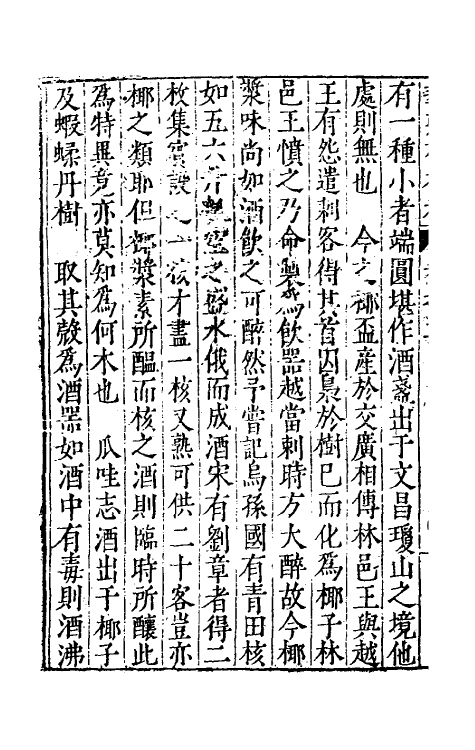 有一種小者端圓堪作酒盞出于文昌瓊山之境他
處則無也　今之椰盃產於交廣相傳林邑王與越
王有怨遣刺客得其首囚梟於樹巳而化爲椰子林
邑王憤之乃命製爲飲器越當刺時方大醉故今椰
漿味尚如酒飲之可醉然予嘗記烏孫國有青田核
如五六升瓠空之盛水俄而成酒宋有劉章者得二
枚集賓設之一核才盡一核又熟可供二十客豈亦
椰之類耶但椰漿素所醖而核之酒則臨時所釀此
爲特異竟亦莫知爲何木也　瓜哇志酒出于椰子
及蝦蝚丹樹　取其殼爲酒器如酒中有毒則酒沸